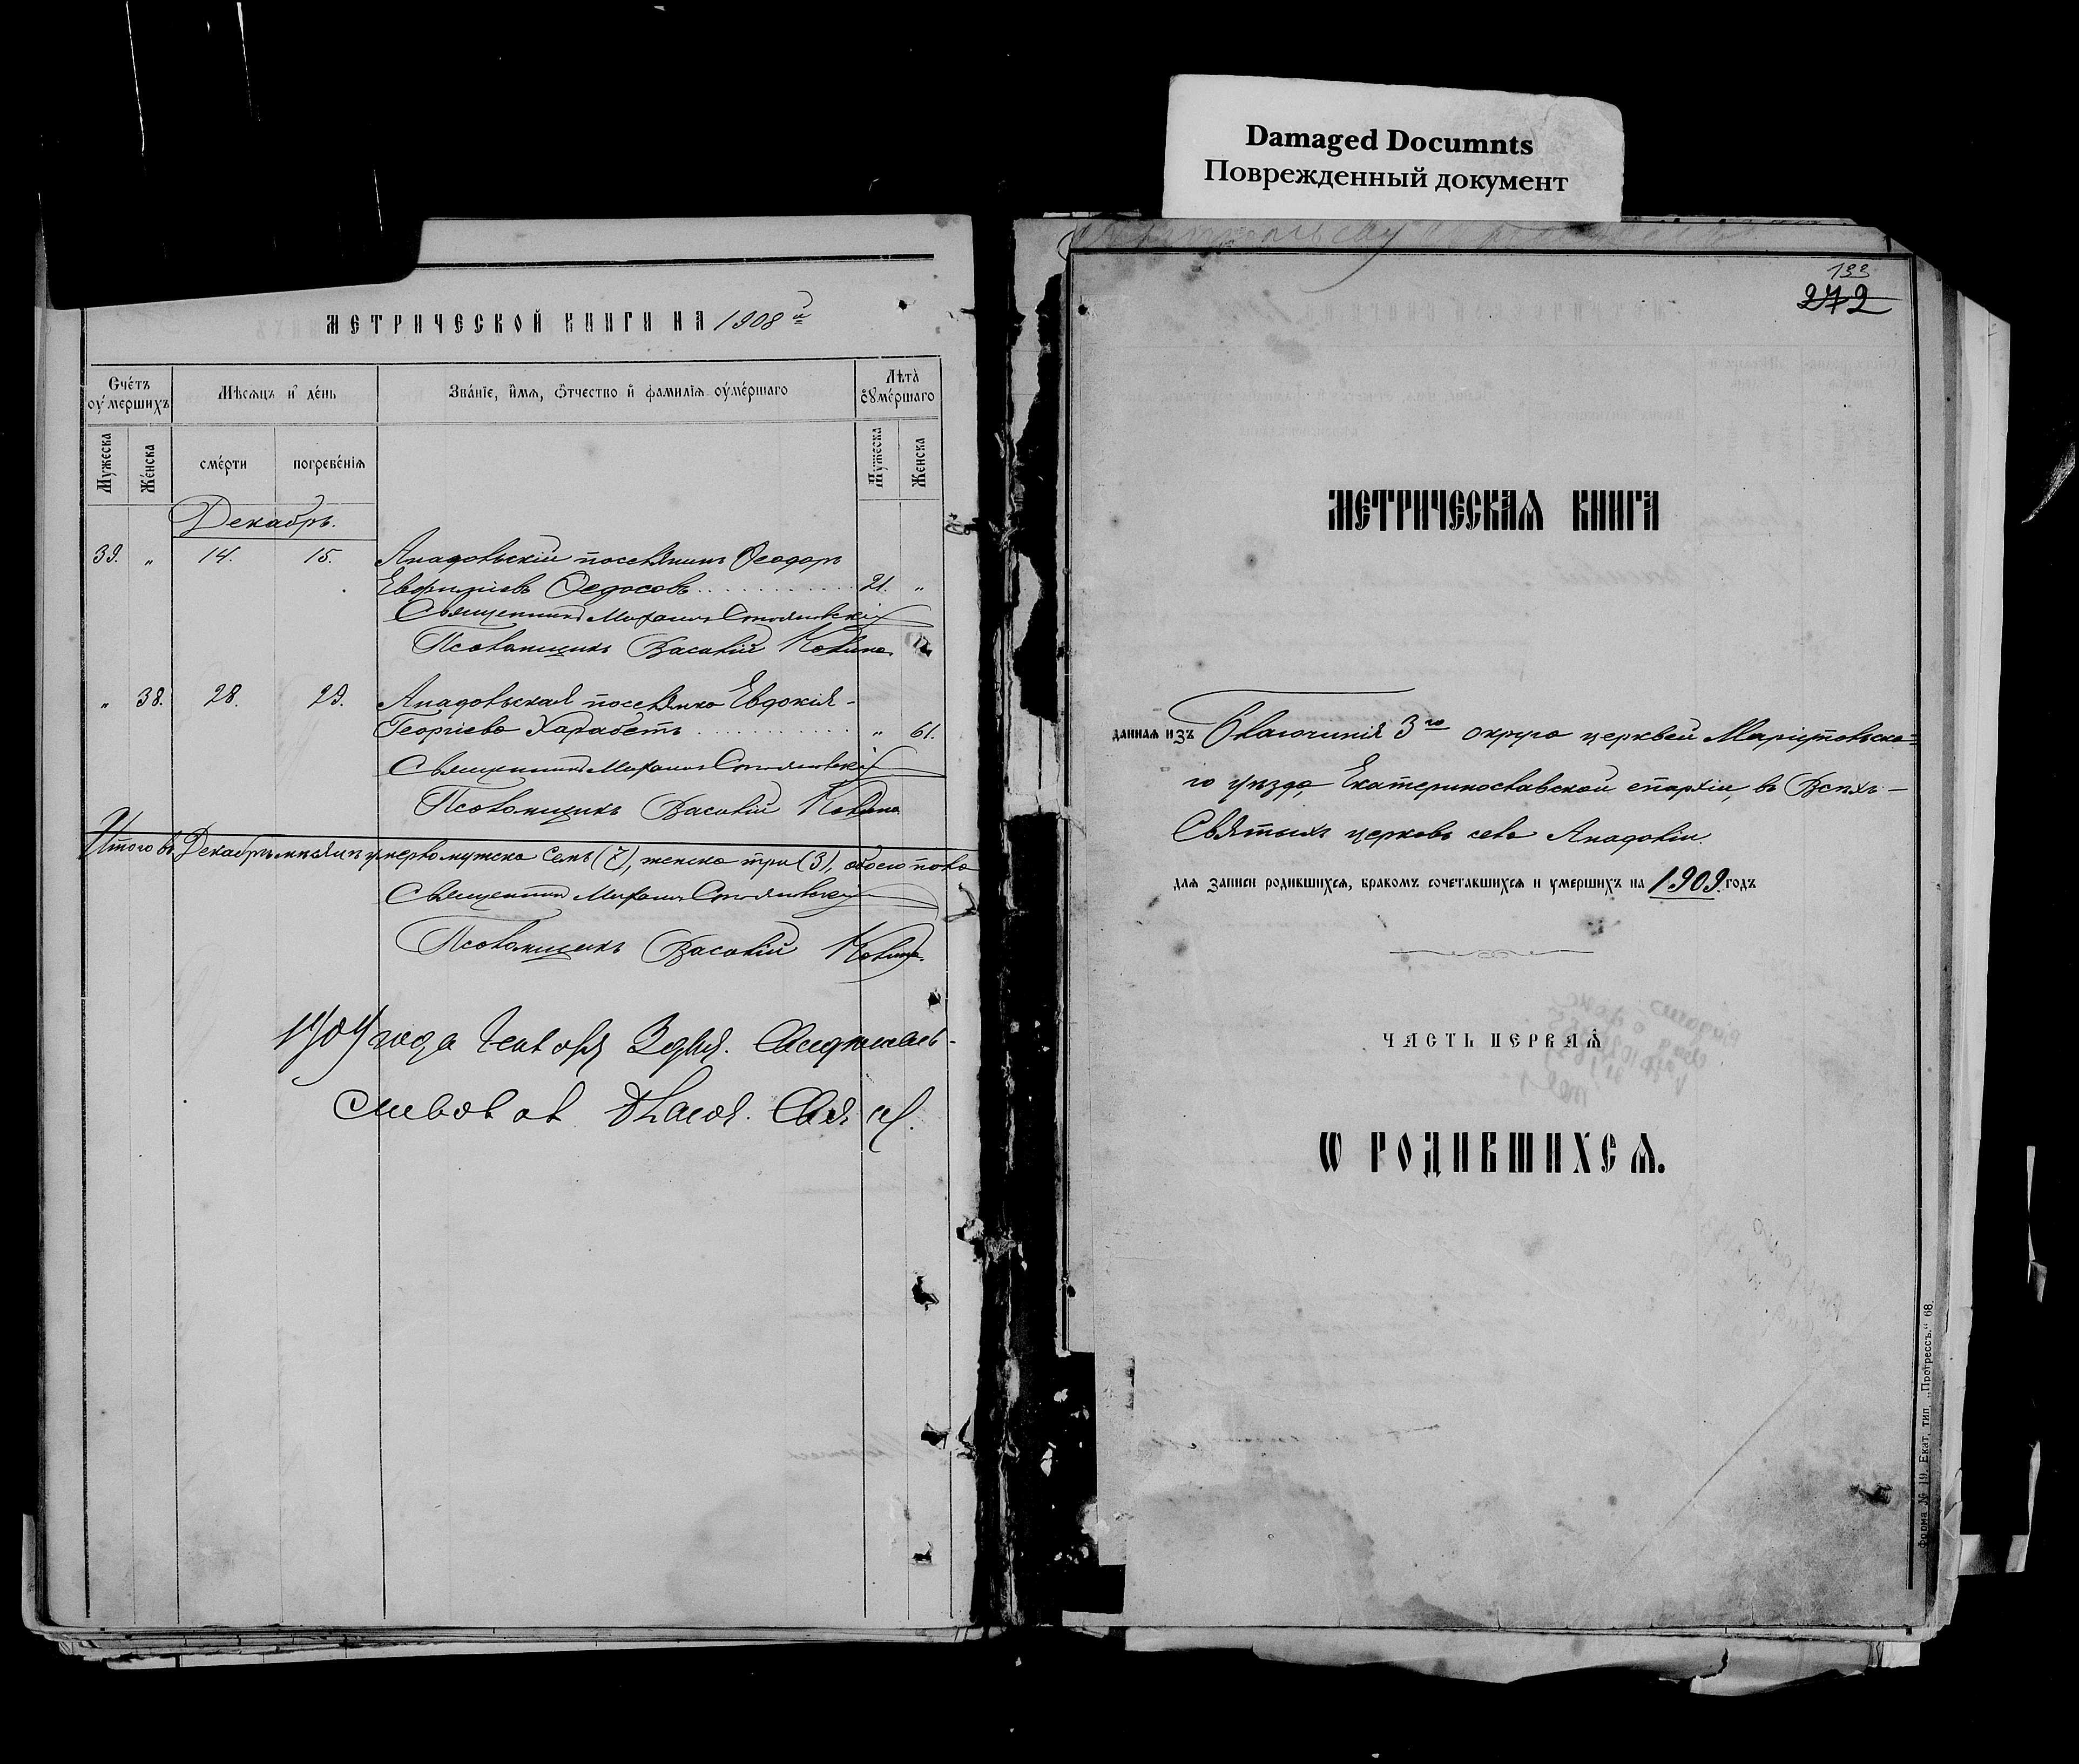 Damaged Documnts
Поврежденный документ
МЕТРИЧЕСКОЙ КНИГИ НА 1908 й
Счéтъ оу́мершихъ
Мѣсяцъ и дéнь
Звáнїе, и́мя, ѻ́тчество и҆ фамилїя оу́мéршаго
Лѣта̀ оу́мéршаго
Мужеска
Женска
смéрти
погребéнїя
Мужеска
Женска
Декабрь.
39. „ 14. 15. Анадольскій поселянинъ Ѳеодоръ
Евфиміевъ Ѳедосовъ . . . . . . . . . . 21. „
Священникъ Михаилъ
Псаломщикъ Василій
„ 38. 28. 29. Анадольская поселянка Евдокія
Георгіева Харабетъ . . . . . . . . . . „ 61.
Священникъ Михаилъ
Псаломщикъ Василій
Итого въ Декабрѣ мѣсяцѣ умерло мужеска семь (7), женска три (3), обоего пола
Священникъ Михаилъ
Псаломщикъ Василій
1909 года Января
Благоч. Свящ.
133
272
МЕТРИЧЕСКАЯ КНИГА
данная изъ Благочинія 3го округа церквей Маріупольска=
го уѣзда, Екатеринославской епархіи, въ Всѣхъ-
Святыхъ церковь села Анадоліи.
для записи родившихся, бракомъ сочетавшихся и умершихъ на 1909 годъ
ЧАСТЬ ПЕРВАЯ
Ѡ РОДИВШИХСЯ.
Форма № 19. Екат, тип. „Прогрессъ.“ 68.